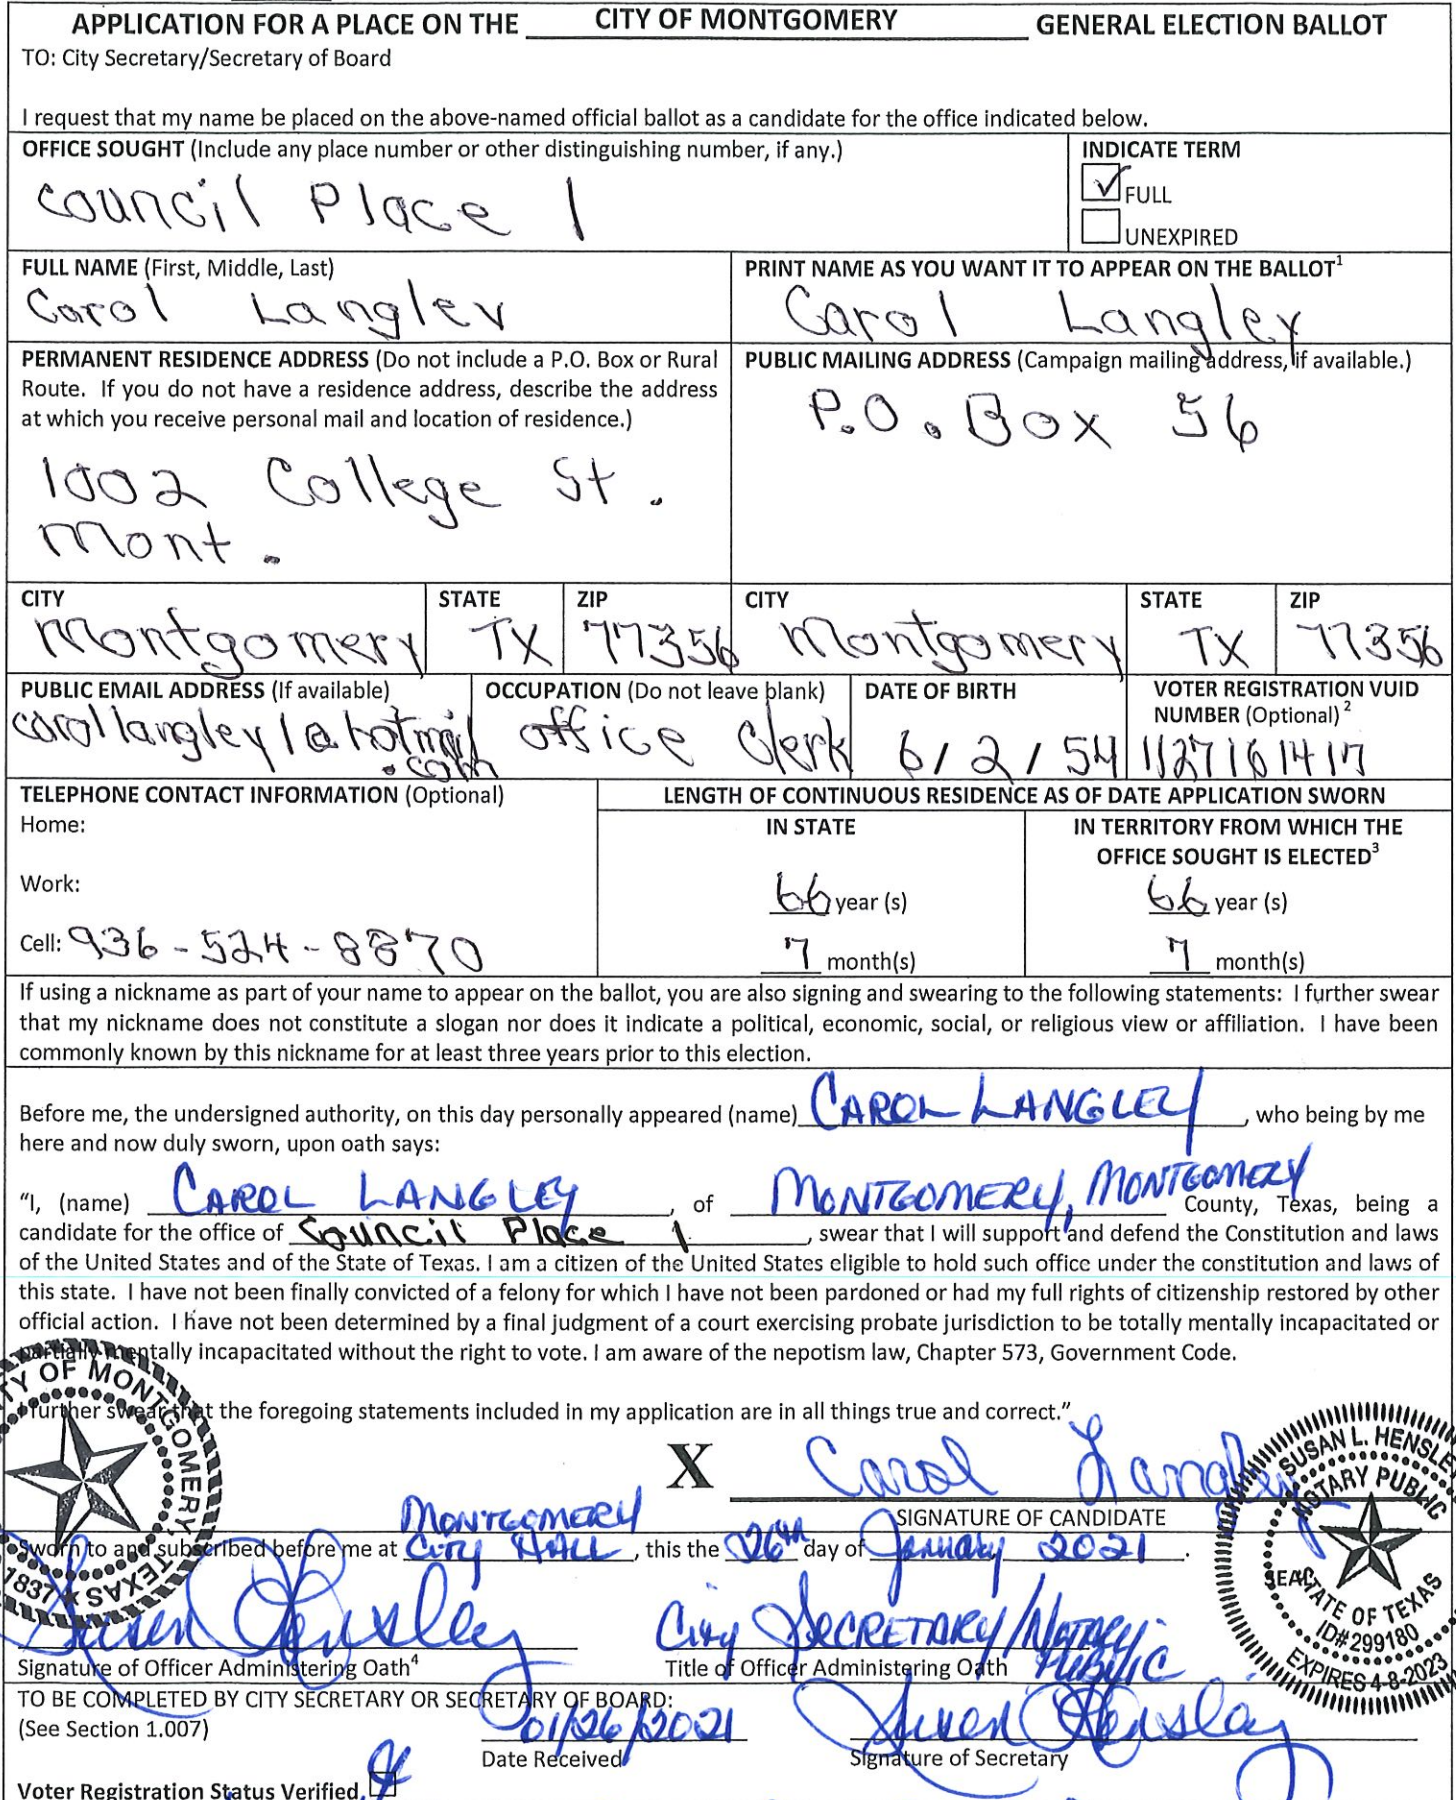 APPLICATION FOR A PLACE ON THE CITY OF MONTGOMERY GENERAL ELECTION BALLOT
TO: City Secretary/Secretary of Board
I request that my name be placed on the above-named official ballot as a candidate for the office indicated below.
OFFICE SOUGHT (Include any place number or other distinguishing number, if any.)
Council Place 1
INDICATE TERM
FULL
UNEXPIRED
FULL NAME (First, Middle, Last)
Carol Langley
PRINT NAME AS YOU WANT IT TO APPEAR ON THE BALLOT1
Carol Langley
PERMANENT RESIDENCE ADDRESS (Do not include a P.O. Box or Rural
Route. If you do not have a residence address, describe the address
at which you receive personal mail and location of residence.)
1002 College St.
Mont.
PUBLIC MAILING ADDRESS (Campaign mailing address, if available.)
P.O. Box 56
CITY
Montgomery
STATE
TX
ZIP
77356
CITY
Montgomery
STATE
TX
ZIP
77356
PUBLIC EMAIL ADDRESS (If available)
carollangley1@hotmail
.com
OCCUPATION (Do not leave blank)
office Clerk
DATE OF BIRTH
6/2/54
VOTER REGISTRATION VUID
NUMBER (Optional) 2
TELEPHONE CONTACT INFORMATION (Optional)
Home:
Work:
Cell: 936-524-8870
LENGTH OF CONTINUOUS RESIDENCE AS OF DATE APPLICATION SWORN
IN STATE
66 year (s)
7 month(s)
IN TERRITORY FROM WHICH THE
OFFICE SOUGHT IS ELECTED3
66 year (s)
7 month(s)
If using a nickname as part of your name to appear on the ballot, you are also signing and swearing to the following statements: I further swear
that my nickname does not constitute a slogan nor does it indicate a political, economic, social, or religious view or affiliation. I have been
commonly known by this nickname for at least three years prior to this election.
Before me, the undersigned authority, on this day personally appeared (name) CAROL LANGLEY, who being by me
here and now duly sworn, upon oath says:
"I, (name) CAROL LANGLEY, of MONTGOMERY, MONTGOMERY County, Texas, being a
candidate for the office of Council Place 1, swear that I will support and defend the Constitution and laws
of the United States and of the State of Texas. I am a citizen of the United States eligible to hold such office under the constitution and laws of
this state. I have not been finally convicted of a felony for which I have not been pardoned or had my full rights of citizenship restored by other
official action. I have not been determined by a final judgment of a court exercising probate jurisdiction to be totally mentally incapacitated or
partially mentally incapacitated without the right to vote. I am aware of the nepotism law, Chapter 573, Government Code.
I further swear that the foregoing statements included in my application are in all things true and correct."
X Carol Langley
SIGNATURE OF CANDIDATE
TY OF MONTGOMERY, TEXAS
1837
SUSAN L. HENSLE
NOTARY PUBLIC
SEAL
STATE OF TEXAS
ID#299180
EXPIRES 4-8-2023
MONTGOMERY
Sworn to and subscribed before me at CITY HALL, this the 26th day of January 2021.
Susan Hensley
Signature of Officer Administering Oath4
City SECRETARY/NOTARY
PUBLIC
Title of Officer Administering Oath
TO BE COMPLETED BY CITY SECRETARY OR SECRETARY OF BOARD:
(See Section 1.007)
01/26/2021
Date Received
Susan Hensley
Signature of Secretary
Voter Registration Status Verified